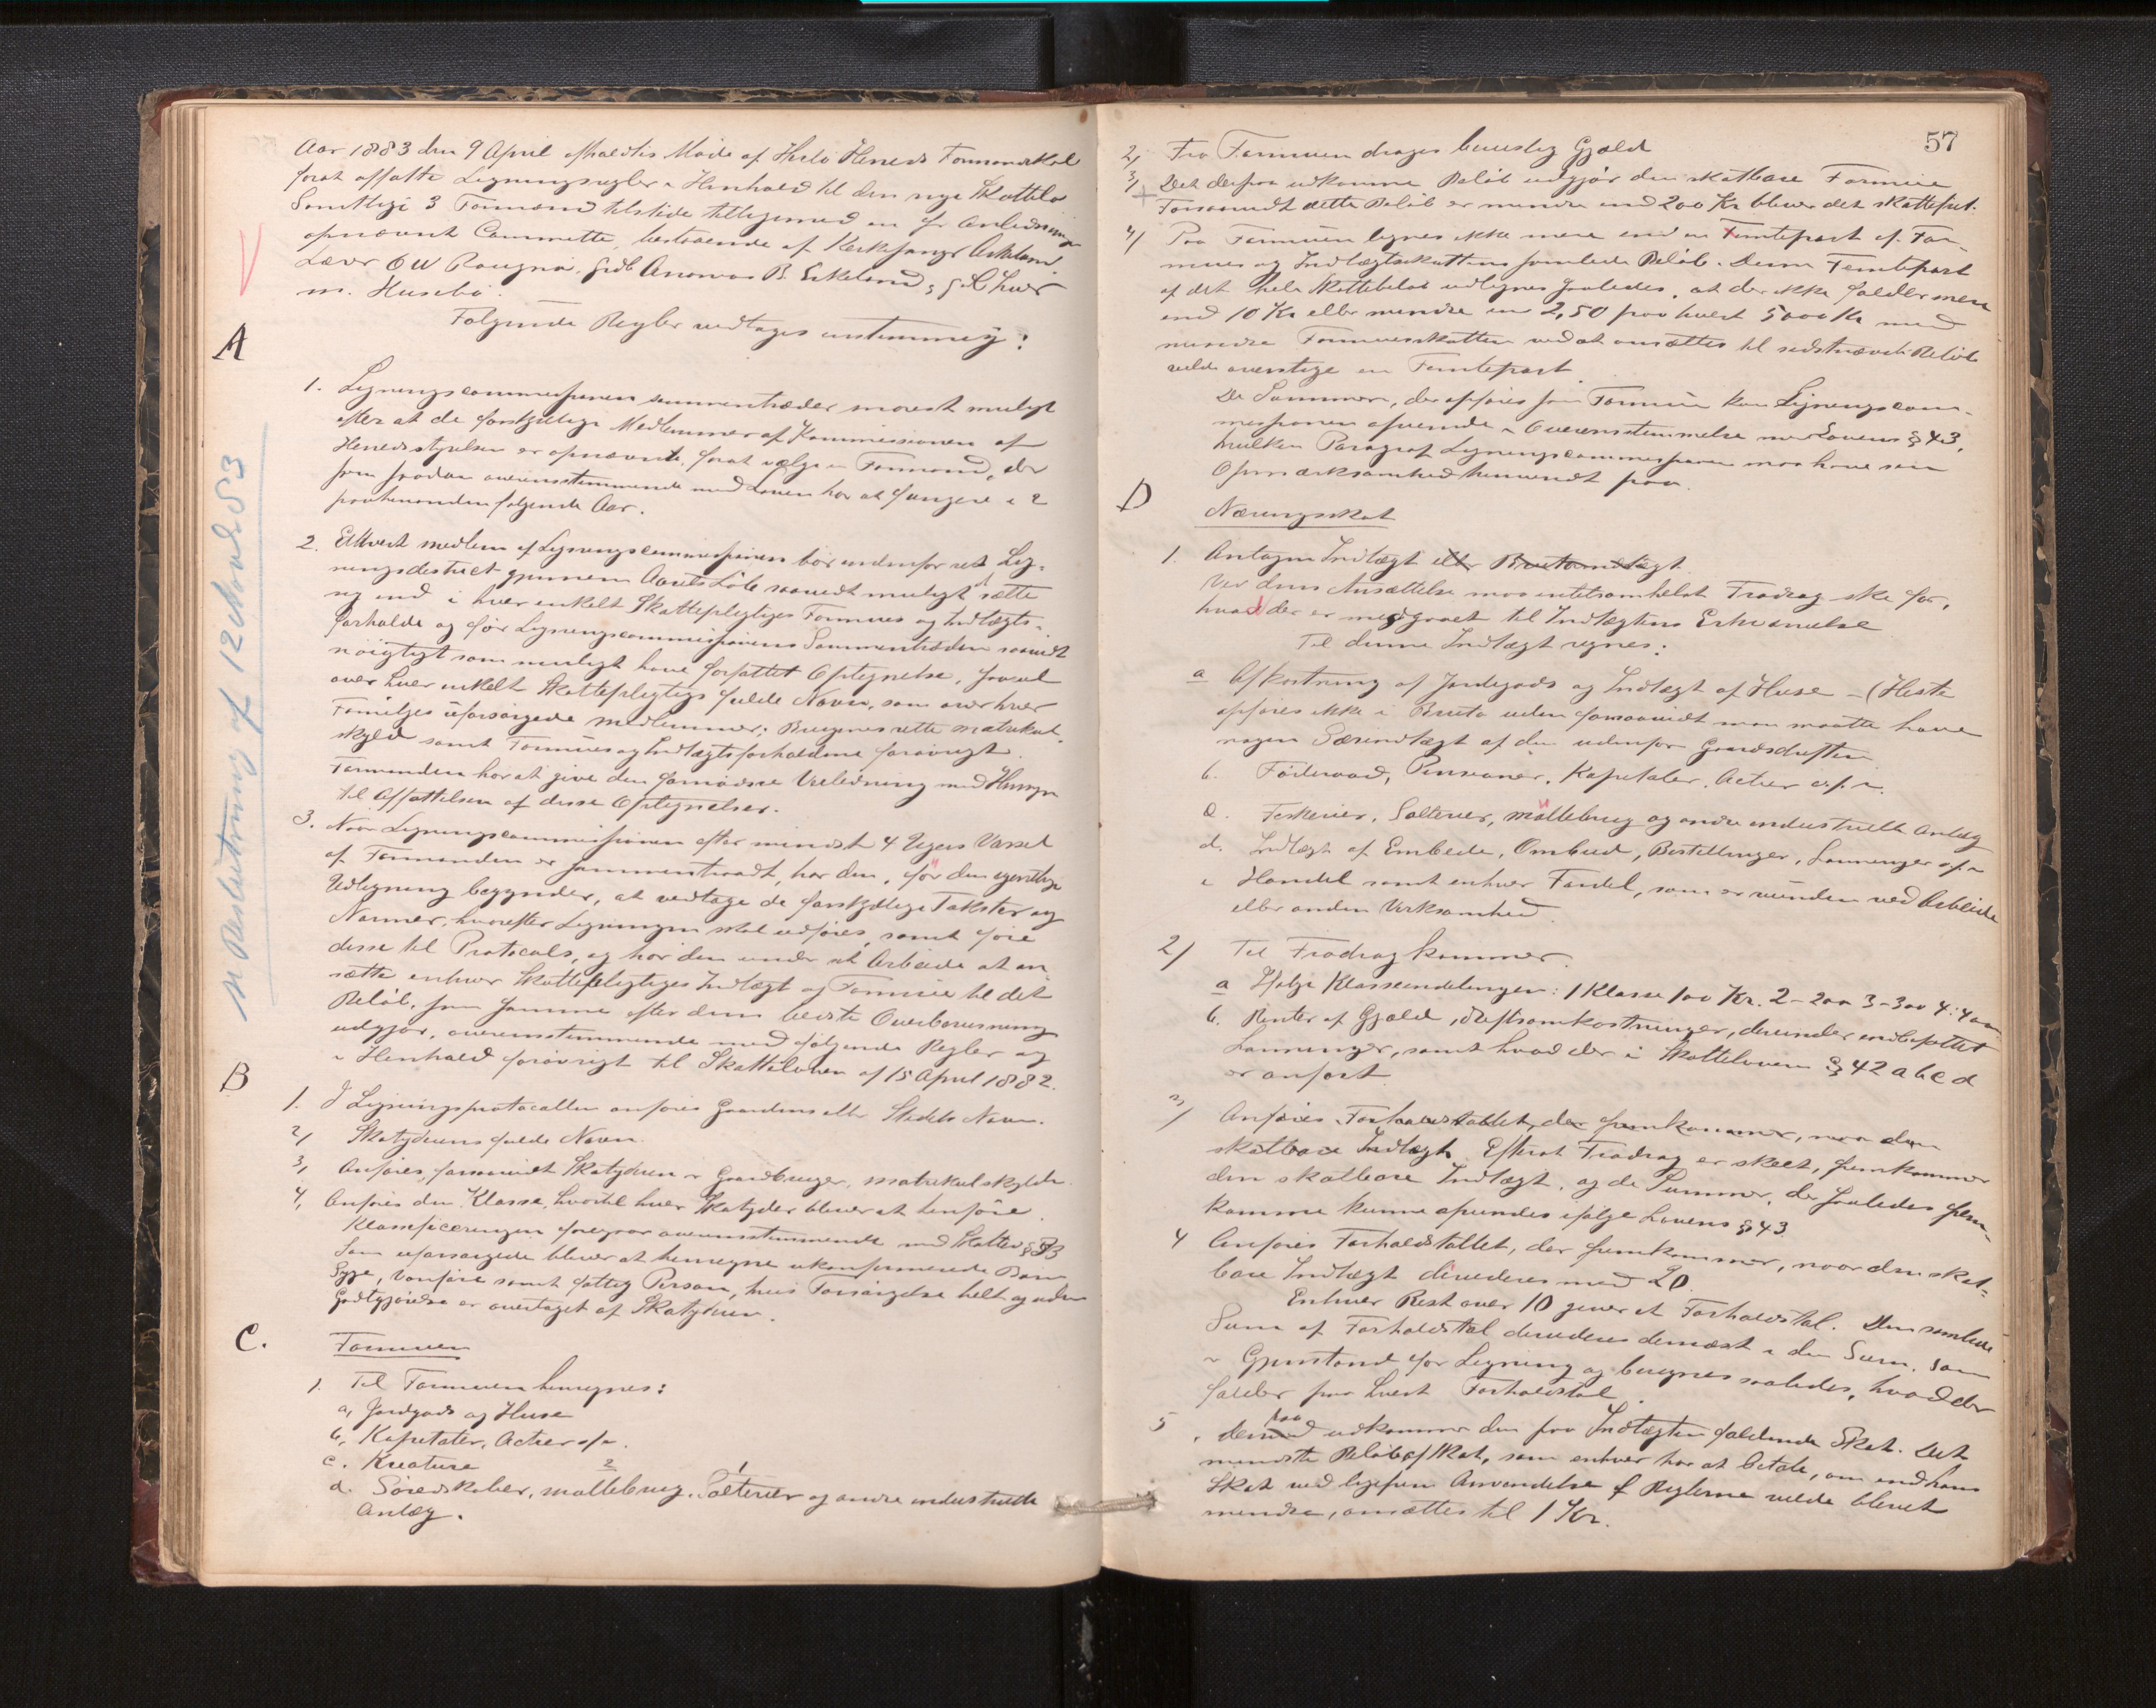 Aar 1883 den 9 April afholdtes Møde af Herlø Herreds Formandskab
forat affatte Ligningsregler i Henhold til den nye Skattelov
Samtlige 3 Formænd tilstede tilligemed en i Anledning
opnævnt Committe, bestaaende af Kirkesanger Askeland
Lærer O W Rougnø, Grdb Anders B. Eskeland, og
m. Husebø.
Følgende Regler vedtages enstemmig:
A
1. Ligningscommissionen sammentræder snarest muligt
efter at de forskjellige Medlemmer af Kommissionen af
Herredsstyrelsen er opnævnte, forat vælge en Formand, der
som saadan overensstemmende med Loven har at fungere i 2
paahinanden følgende Aar.
2. Ethvert medlem af Ligningscommissionen bør indenfor sit Lig-
ningsdistrict gjennem Aarets Løb saavidt muligt sætte
sig ind i hver enkelt Skattepligtiges Formues og Indtægts-
forholde og før Ligningscommissionens Sammentræden saavidt
nøigtigt som muligt have forfattet Optegnelse, saavel
over hver enkelt Skattepligtigs fulde Navn, som over hver
Familjes uforsørgede medlemmer; Brugenes rette matrikul-
skyld samt Formues og Indtægtsforholdene forøvrigt.
Formanden har at give den fornødne Veiledning med Hensyn
til Affattelsen af disse Optegnelser.
3. Naar Ligningscommissionen efter mindst 4 Ugers Varsel
af Formanden er sammentraadt, har den, før den egentlige
Udligning begynder, at vedtage de forskjellige Takster og
Normer, hvorefter Ligningen skal udføres, samt føre
disse til Protocols, og har den under sit Arbeide at an-
sætte enhver Skattepligtiges Indtægt og Formue til det
Beløb, som samme efter dens bedste Overbevisning
udgjør, overensstemmende med følgende Regler og
i Henhold forøvrigt til Skatteloven af 15 April 1882.
B
1. I Ligningsprotocollen anføres Gaardens eller Stedets Navn.
2, Skatyderens fulde Navn.
3, Anføres, forsaavidt Skatyderen er Gaardbruger, matrikulskylden.
4, Anføres den Klasse, hvortil hver Skatyder bliver at henføre.
Klassificeringen foregaar overensstemmende med Skattelov § 33
Som uforsørgede bliver at henregne ukonfirmerede Børn
Syge, Vanføre samt fattig Person, hvis Forsørgelse helt og uden
Godtgjørelse er overtaget af Skatyderen.
C.
Formuen
1. Til Formuen henregnes:
a, Jordgods og Huse
b, Kapitaler, Actier o s v.
c. Kreature
d. Søredskaber, møllebrug, Salterier og andre industrielle
Anlæg.
N Beslutning af 12 ektober 83
57
2, Fra Formuen drages beviislig Gjæld
3, Det derfra udkomne Beløb udgjør den skatbare Formue
Forsaavidt dette Beløb er mindre end 200 Kr bliver det skattefrit.
4, Paa Formuen lignes ikke mere end en Femtepart af For-
mues og Indtægtsskattens samlede Beløb. Denne Femtepart
af det hele Skattebeløb udlignes saaledes, at der ikke falder mere
end 10 Kr eller mindre end 2,50 paa hvert 5000 Kr med
mindre Formuesskatten ved at ansættes til sidstnævnte Beløb
vilde overstige en Femtepart.
De Summer, der opføres som Formue kan Ligningscom-
missionen afrunde i Overensstemmelse med Lovens § 43,
hvilken Paragraf Ligningscommissionen maa have sin
Opmærksomhed henvendt paa.
D
Næringsskat
1. Antagen Indtægt eller Bruttoindtægt.
Ved dens Ansættelse maa intetsomhelst Fradrag ske for,
hvad der er medgaaet til Indtægtens Erhvervelse
Til denne Indtægt regnes:
a Afkastning af Jordegods og Indtægt af Huse – (Heste
opføres ikke i Brutto uden forsaavidt man maatte have
nogen Særindtægt af den udenfor Gaardsdriften
b. Føderaad, Pensioner, Kapitaler, Actier o s v.
c. Fiskerier, Salterier, møllebrug og andre industrielle Anlæg
d. Indtægt af Embede, Ombud, Bestillinger, Lønninger o s v
e Handel samt enhver Fordel, som er vunden ved Arbeide
eller anden Virksomhed.
2, Til Fradrag kommer.
a Ifølge Klasseindelingen: 1 Klasse 100 Kr. 2 – 200 3 – 300 4: 400
b. Renter af Gjæld, driftsomkostninger, derunder indbefattet
Lønninger, samt hvad der i Skatteloven § 42 a b c d
er anført
3, Anføres Forholdstallet, der fremkommer, naar den
skatbare Indtægt. Efterat Fradrag er skeet, fremkommer
den skatbare Indtægt, og de Summer, der saaledes frem-
komme kunne afrundes ifølge Lovens § 43
4 Anføres Forholdstallet, der fremkommer, naar den skat-
bare Indtægt divideres med 20
Enhver Rest over 10 giver et Forholdstal. Den samlede
Sum af Forholdstal divideres dernæst i den Sum, som
er Gjenstand for Ligning og beregnes saaledes, hvad der
falder paa hvert Forholdstal.
5. Derved udkommer den paa Indtægten faldende Skat. Det
mindste Beløb af Skat, som enhver har at betale, om end hans
Skat ved ligefrem Anvendelse af Reglerne vilde blevet
mindre, ansættes til 1 Kr.